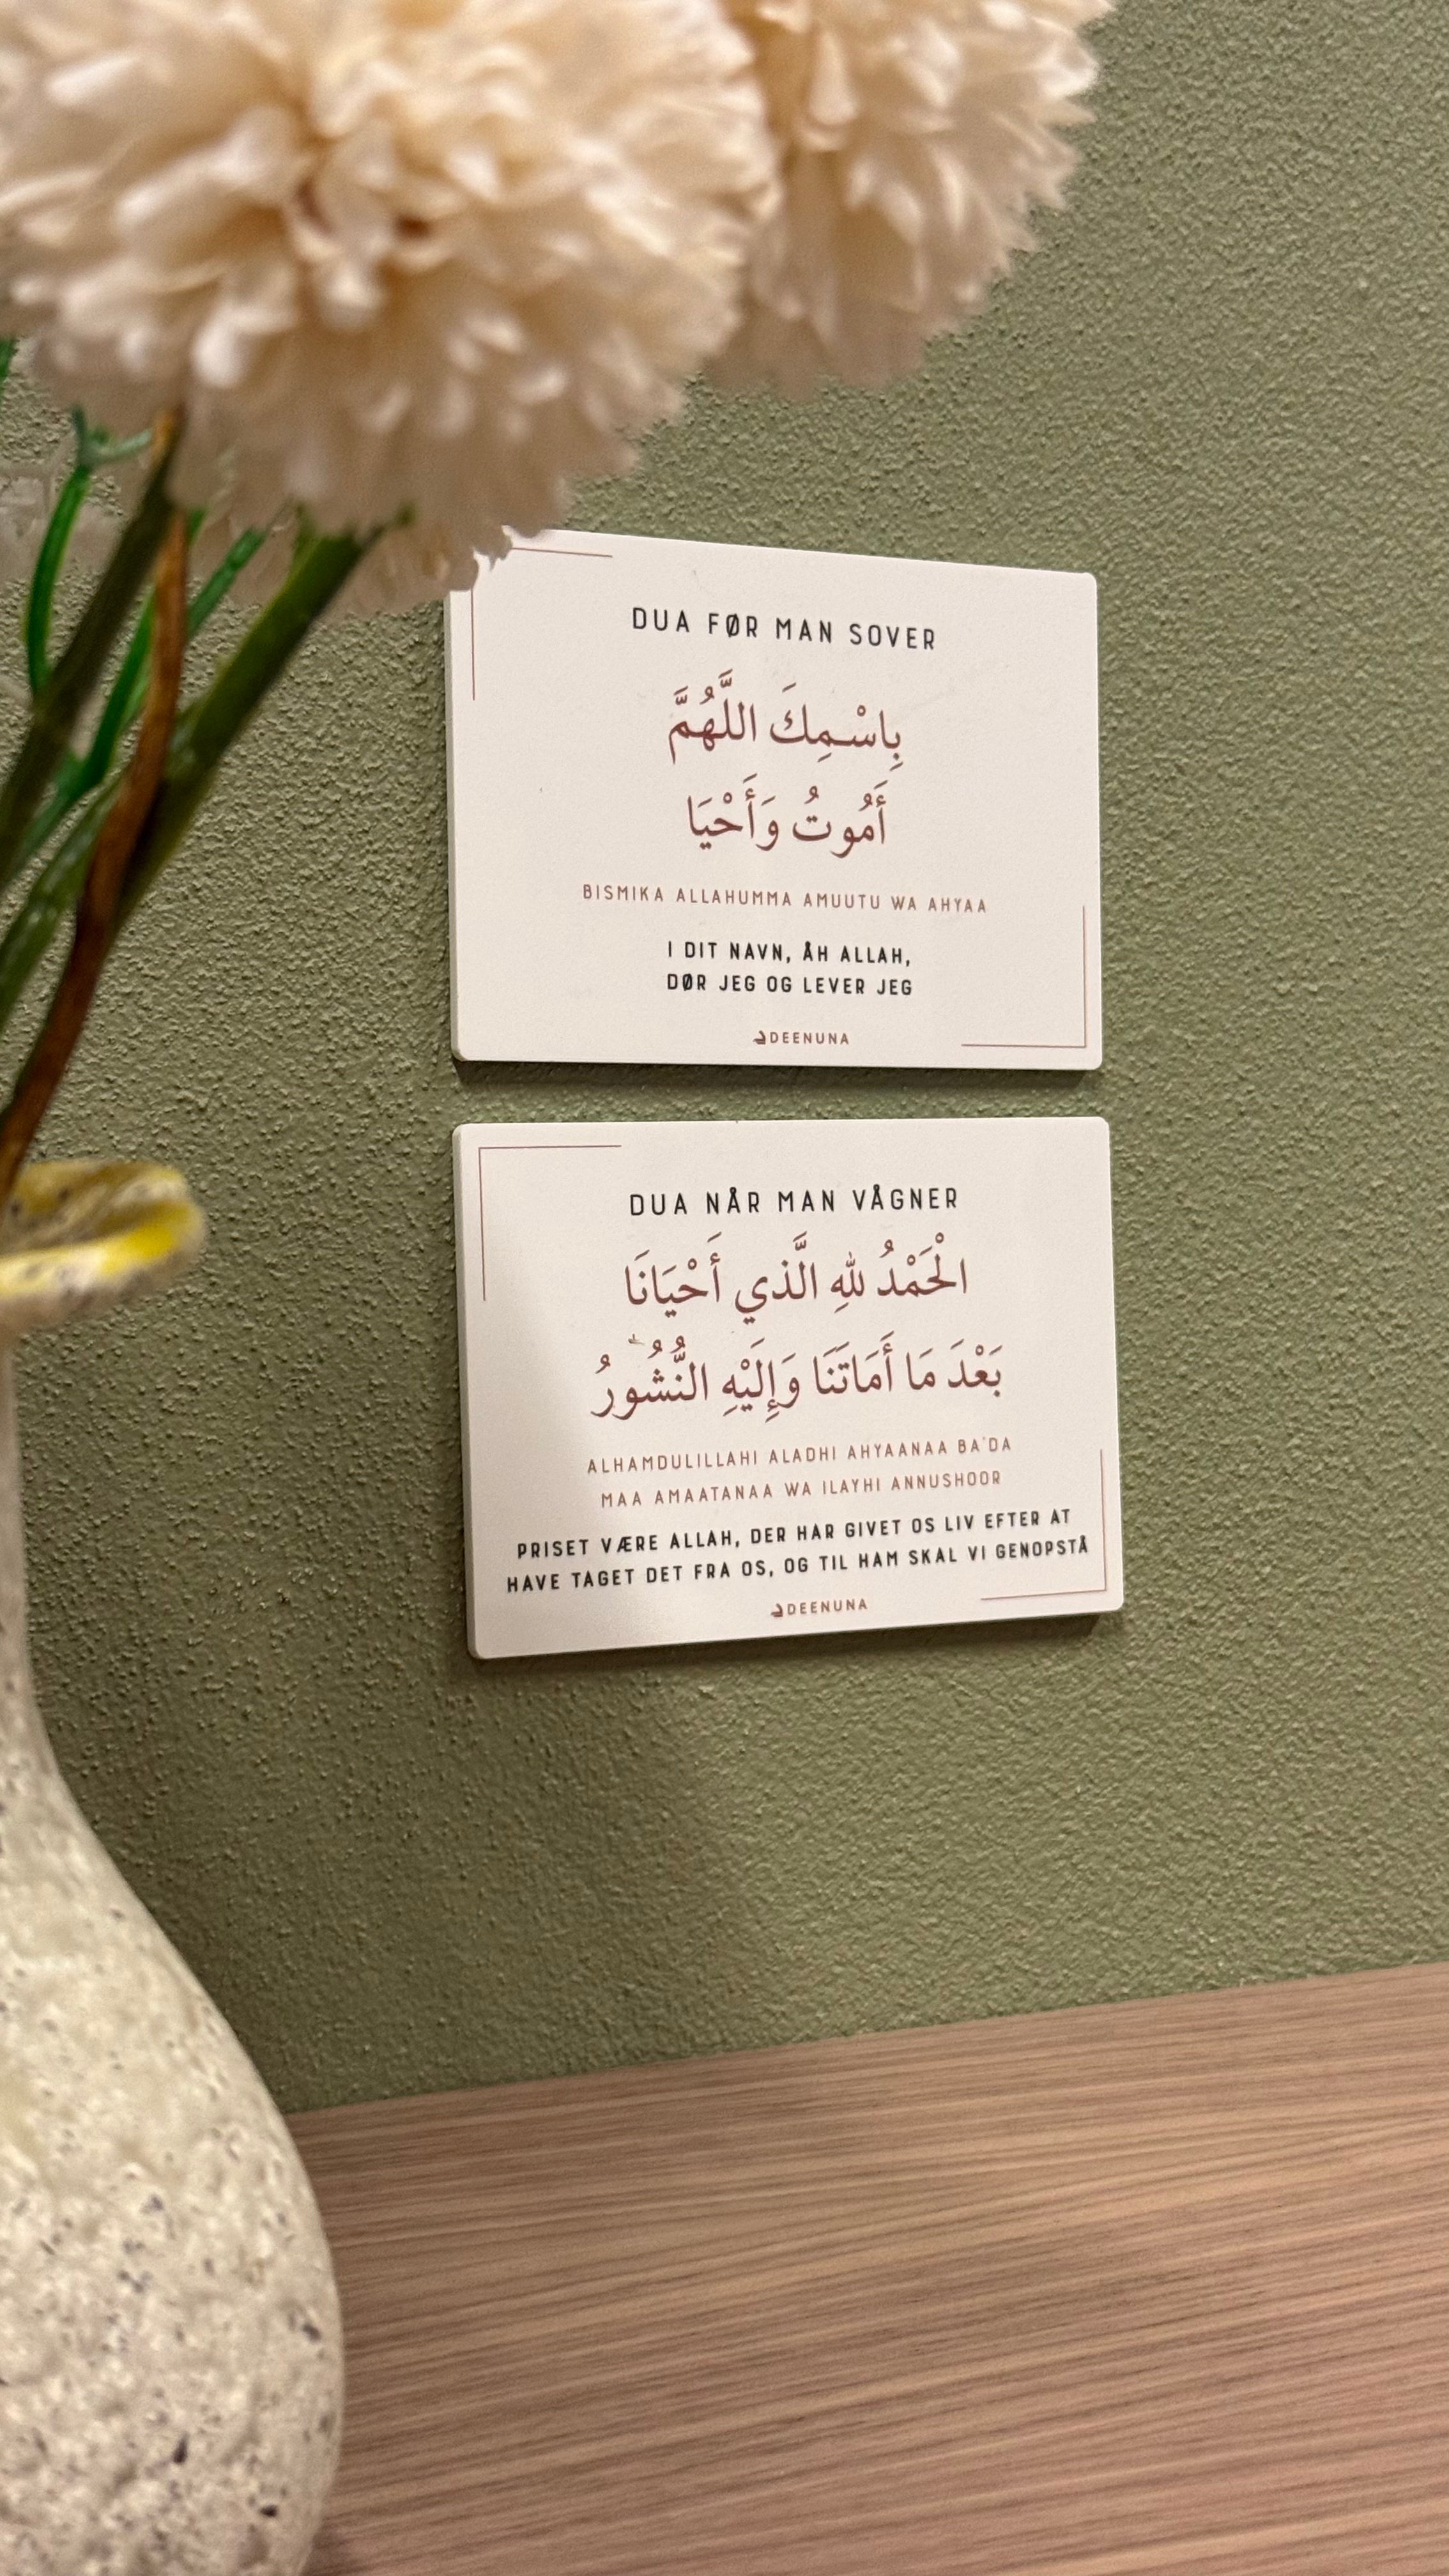 DUA FØR MAN SOVER
بِاسْمِكَ اللَّهُمَّ
أَمُوتُ وَأَحْيَا
BISMIKA ALLAHUMMA AMUUTU WA AHYAA
I DIT NAVN, ÅH ALLAH,
DØR JEG OG LEVER JEG
DEENUNA
DUA NÅR MAN VÅGNER
الْحَمْدُ لِلَّهِ الَّذِي أَحْيَانَا
بَعْدَ مَا أَمَاتَنَا وَإِلَيْهِ النُّشُورُ
ALHAMDULILLAHI ALADHI AHYAANAA BA'DA
MAA AMAATANAA WA ILAYHI ANNUSHOOR
PRISET VÆRE ALLAH, DER HAR GIVET OS LIV EFTER AT
HAVE TAGET DET FRA OS, OG TIL HAM SKAL VI GENOPSTÅ
DEENUNA